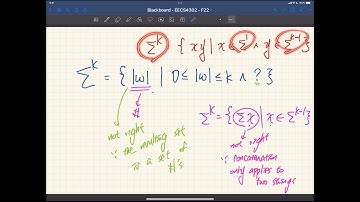 Blackboard - EECS4302 - F22
Σ^k { xy | x ∈ Σ^1 ∧ y ∈ Σ^{k-1} }
Σ^k = { |w| | 0 ≤ |w| ≤ k ∧ ? }
#
not right
∵ the resulting set
is a set of
#'s
Σ^k = { Σx | x ∈ Σ^{k-1} }
not right
∵ concatenation
only applies to
two strings